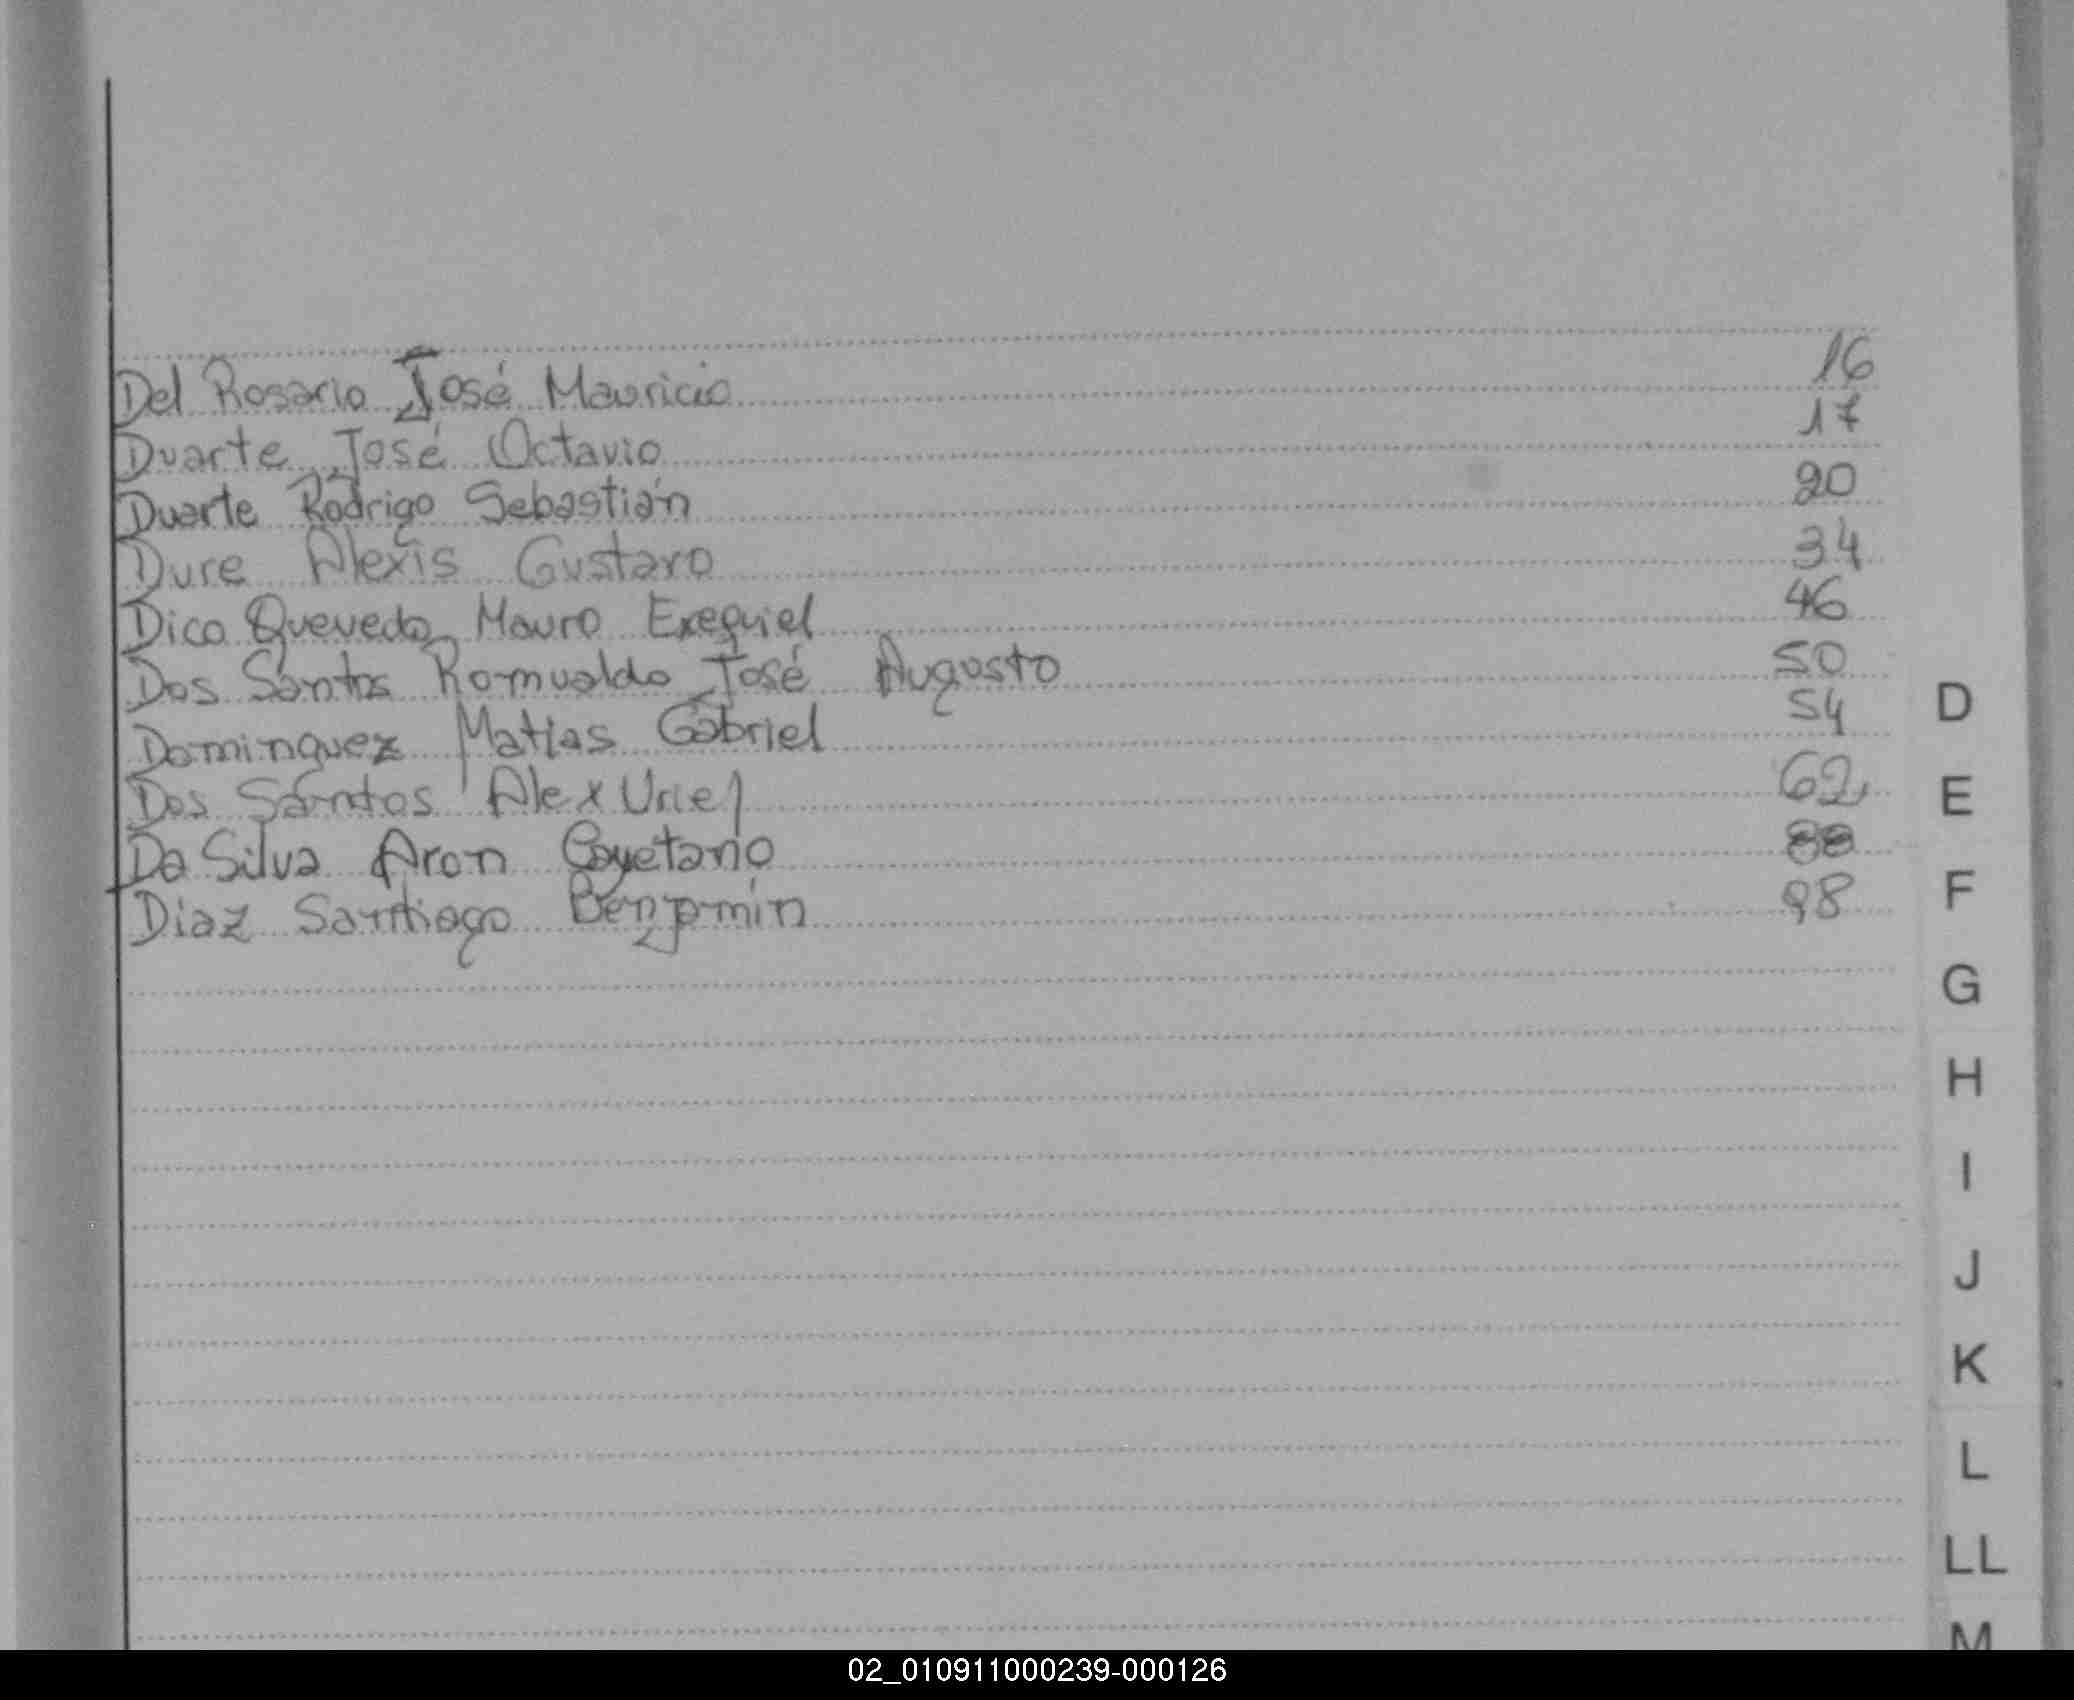 Del Rosario José Mauricio 16
Duarte José Octavio 17
Duarte Rodrigo Sebastián 20
Dure Alexis Gustavo 34
Dico Quevedo Mauro Exequiel 46
Dos Santos Romualdo José Augusto 50
Dominguez Matias Gabriel 54
Dos Santos Alex Uriel 62
Da Silva Aron Cayetano 88
Diaz Santiago Benjamín 98
D
E
F
G
H
I
J
K
L
LL
M
02_010911000239-000126